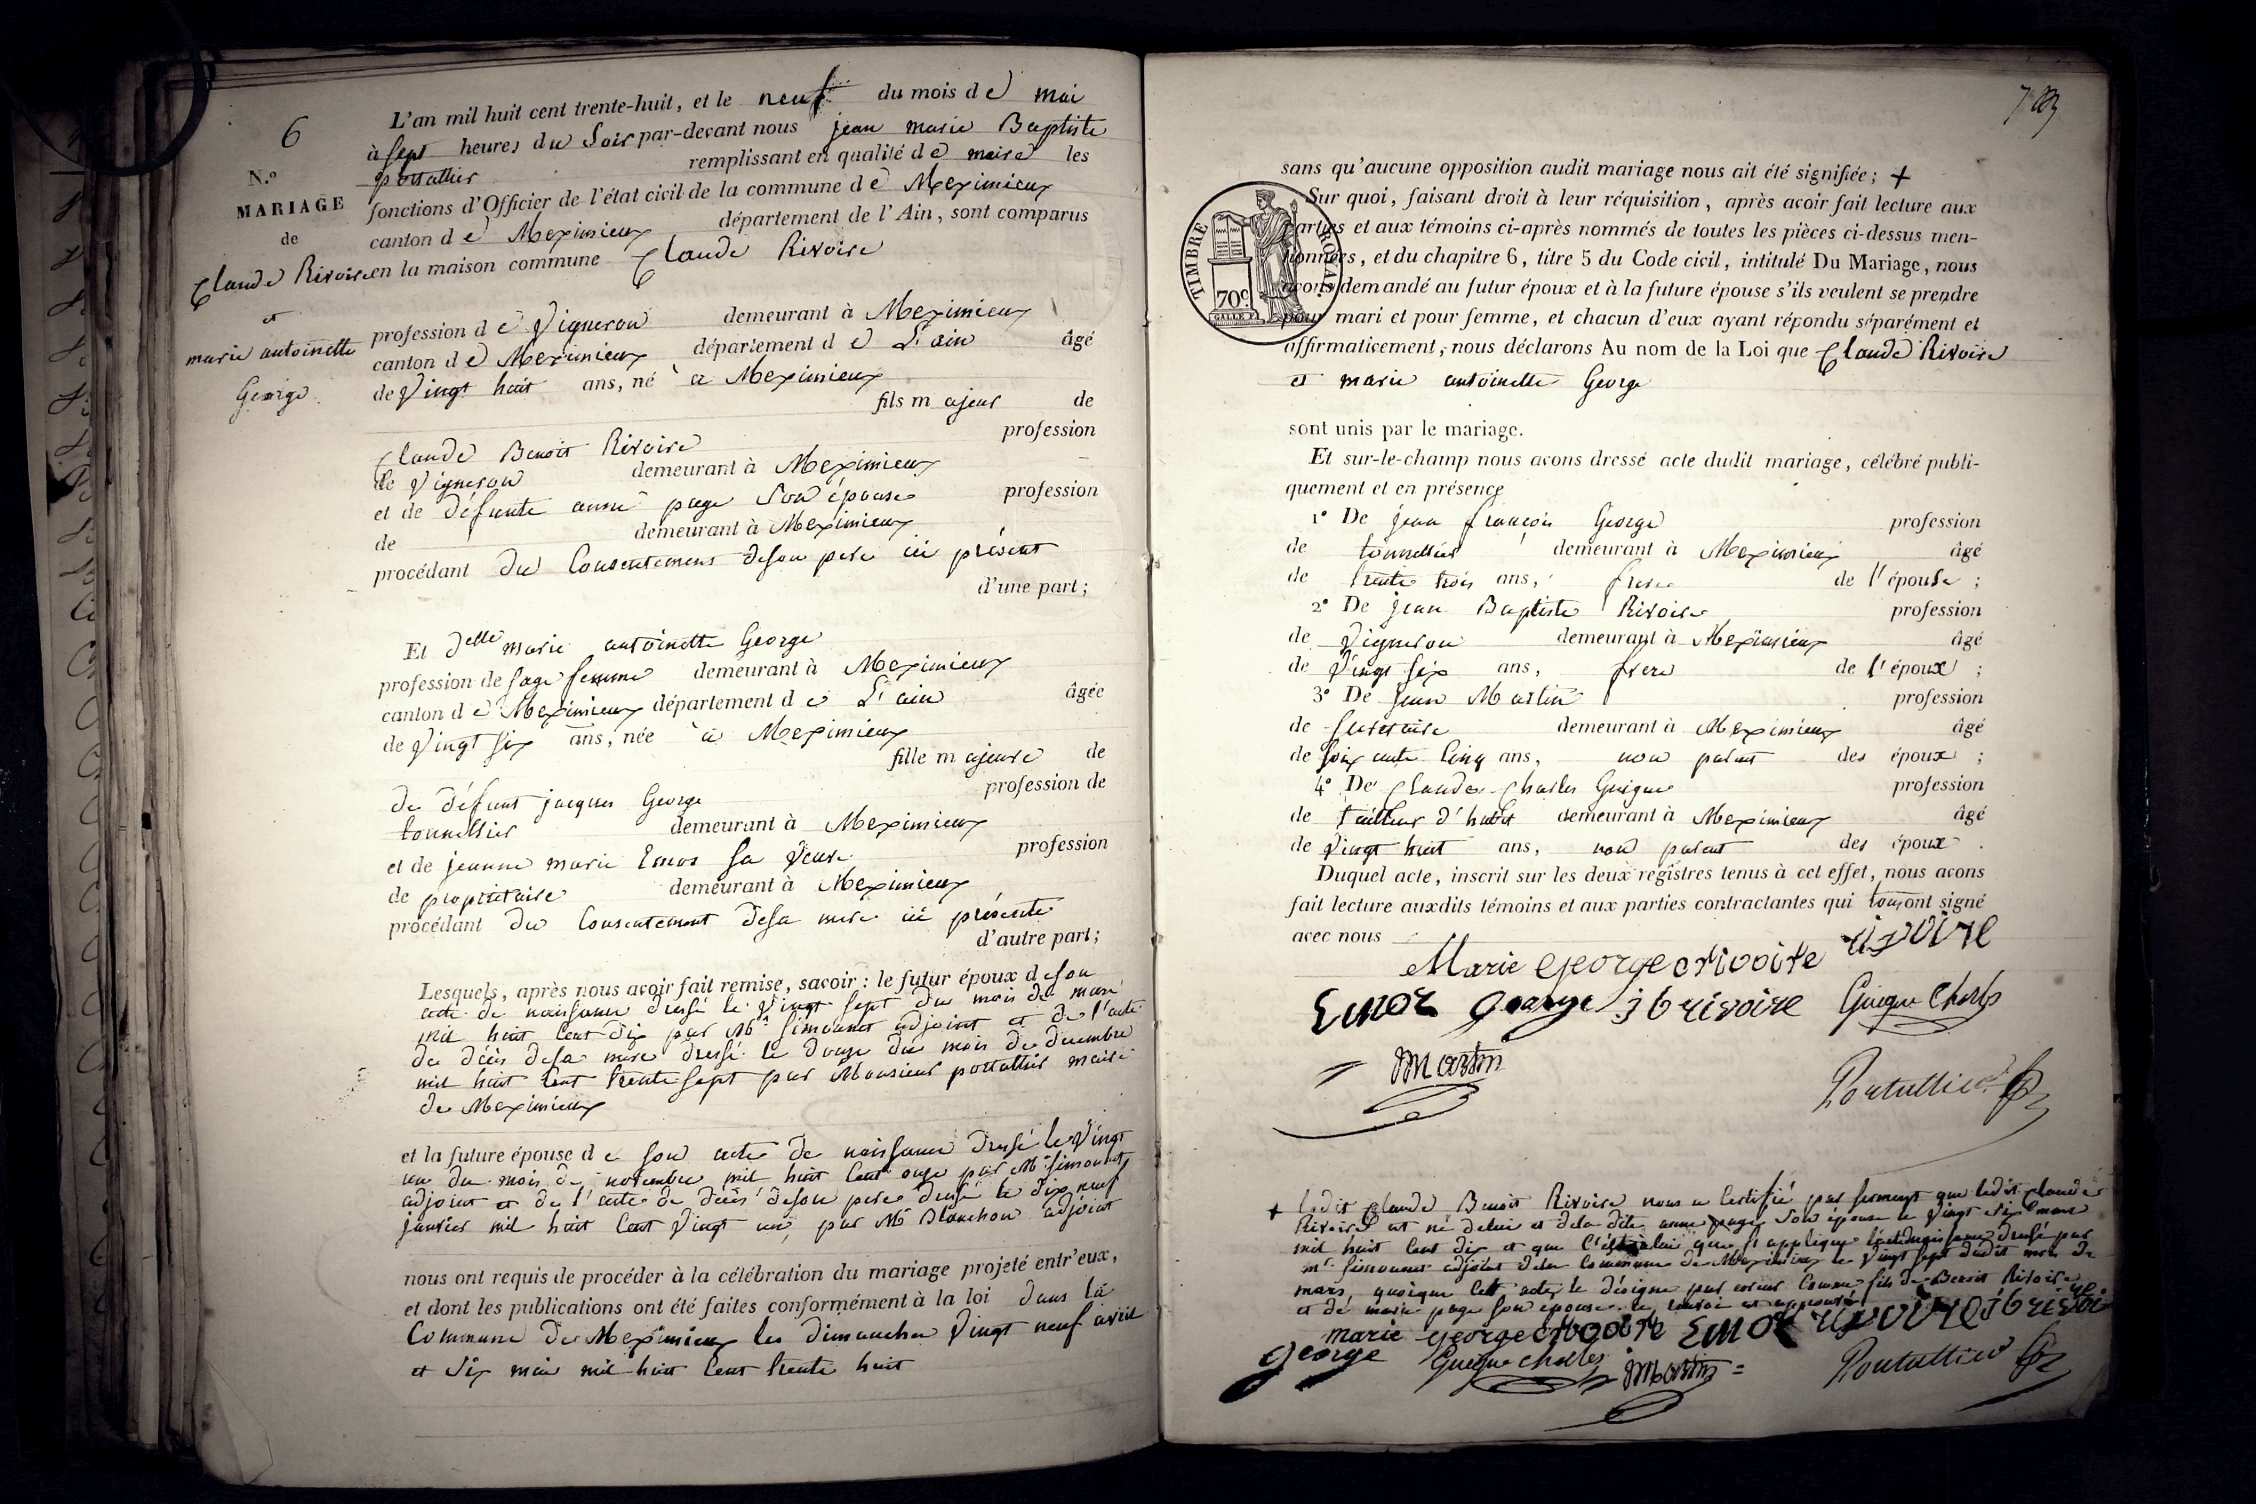 6
N.º
MARIAGE
de
Claude Rivoire
et
marie antoinette
George
L'an mil huit cent trente-huit, et le neuf du mois de mai
à sept heures du Soir par-devant nous jean marie Baptiste
portallier remplissant en qualité de maire les
fonctions d'Officier de l'état civil de la commune de Meximieux
canton de Meximieux département de l'Ain, sont comparus
en la maison commune Claude Rivoire
profession de Vigneron demeurant à Meximieux
canton de Meximieux département de L'ain âgé
de Vingt huit ans, né à Meximieux
fils majeur de
Claude Benoit Rivoire profession
de Vigneron demeurant à Meximieux
et de défunte anne page Son épouse profession
de demeurant à Meximieux
procédant du Consentement de son pere ici présent
d'une part;
Et delle marie antoinette George
profession de sage femme demeurant à Meximieux
canton de Meximieux département de L'ain âgée
de Vingt six ans, née à Meximieux
fille majeure de
de défunt jacques George profession de
tonnellier demeurant à Meximieux
et de jeanne marie Emor sa Veuve profession
de propriétaire demeurant à Meximieux
procédant du Consentement de sa mere ici présente
d'autre part;
Lesquels, après nous avoir fait remise, savoir : le futur époux de son
acte de naissance dressé le Vingt sept du mois de mars
mil huit Cent dix par Mr Simonnet adjoint et de l'acte
de décès de sa mere dressé le douze du mois de decembre
mil huit Cent trente sept par Monsieur portallier maire
de Meximieux
et la future épouse de son acte de naissance dressé le Vingt
un du mois de novembre mil huit Cent onze par Mr Simonnet
adjoint et de l'acte de décès de son pere dressé le dix neuf
janvier mil huit Cent Vingt un, par Mr Blanchon adjoint
nous ont requis de procéder à la célébration du mariage projeté entr'eux,
et dont les publications ont été faites conformément à la loi dans la
Commune de Meximieux les dimanches Vingt neuf avril
et Six mai mil huit Cent trente huit
sans qu'aucune opposition audit mariage nous ait été signifiée; +
Sur quoi, faisant droit à leur réquisition, après avoir fait lecture aux
parties et aux témoins ci-après nommés de toutes les pièces ci-dessus men-
tionnées, et du chapitre 6, titre 5 du Code civil, intitulé Du Mariage, nous
avons demandé au futur époux et à la future épouse s'ils veulent se prendre
pour mari et pour femme, et chacun d'eux ayant répondu séparément et
affirmativement, nous déclarons Au nom de la Loi que Claude Rivoire
et marie antoinette George
TIMBRE ROYAL
70c
sont unis par le mariage.
Et sur-le-champ nous avons dressé acte dudit mariage, célébré publi-
quement et en présence
1º De jean françois George profession
de tonnellier demeurant à Meximieux âgé
de trente trois ans, frere de l'épouse ;
2º De jean Baptiste Rivoire profession
de Vigneron demeurant à Meximieux âgé
de Vingt six ans, frere de l'époux ;
3º De jean Martin profession
de secretaire demeurant à Meximieux âgé
de soixante Cinq ans, non parent des époux ;
4º De Claude Charles Guigue profession
de tailleur d'habit demeurant à Meximieux âgé
de Vingt huit ans, non parent des époux .
Duquel acte, inscrit sur les deux registres tenus à cet effet, nous avons
fait lecture auxdits témoins et aux parties contractantes qui tous ont signé
avec nous
Marie george crivoire rivoire
Emor george j b rivoire Guigue Charles
Martin
Portallier
+ ledit Claude Benoit Rivoire nous a Certifié par serment que ledit Claude
Rivoire est né de lui et de la dite anne page Son épouse le Vingt six mars
mil huit Cent dix et que C'est à lui que s'applique l'acte de naissance dressé par
mr Simonnet adjoint de la Commune de Meximieux le Vingt sept dudit mois de
mars, quoique cet acte le désigne par erreur Comme fils de Benoit Rivoire
et de marie page son épouse. le renvoi est approuvé
marie george crivoire Emor rivoire jb rivoire
george Guigue charles Martin Portallier